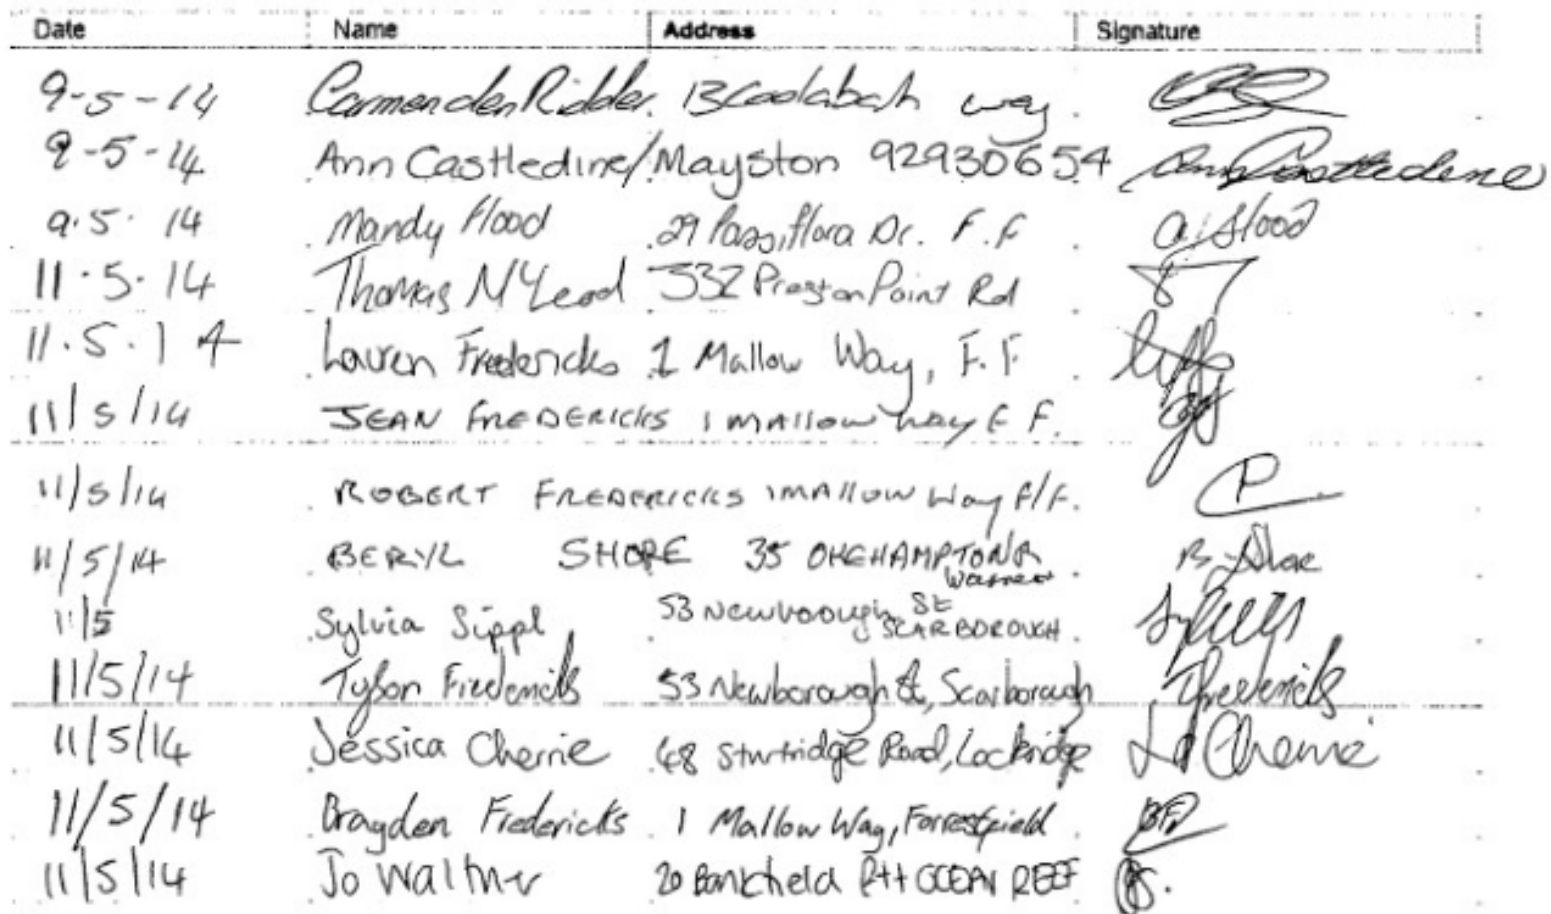 Date Name Address Signature
9-5-14 Carmen den Ridder. 13 Coolabah way.
9-5-14 Ann Castledine/Mayston 92930654 Ann Castledine
9.5.14 Mandy Flood 29 Passiflora Dr. F.F a. Flood
11.5.14 Thomas McLeod 332 Preston Point Rd
11.5.14 Lauren Fredericks 1 Mallow Way, F.F
11/5/14 JEAN FREDERICKS 1 MAllow Way F F.
11/5/14 ROBERT FREDERICKS 1 MAllow Way F/F.
11/5/14 BERYL SHORE 35 OKEHAMPTON R B Shore
11/5 Sylvia Sippl 53 Newborough St SCARBOROUGH
11/5/14 Tyson Fredericks 53 Newborough St, Scarborough Fredericks
11/5/14 Jessica Cherrie 48 Sturtridge Road, Lockridge Cherrie
11/5/14 Brayden Fredericks 1 Mallow Way, Forrestfield BF
11/5/14 Jo Waltner 20 OCEAN REEF